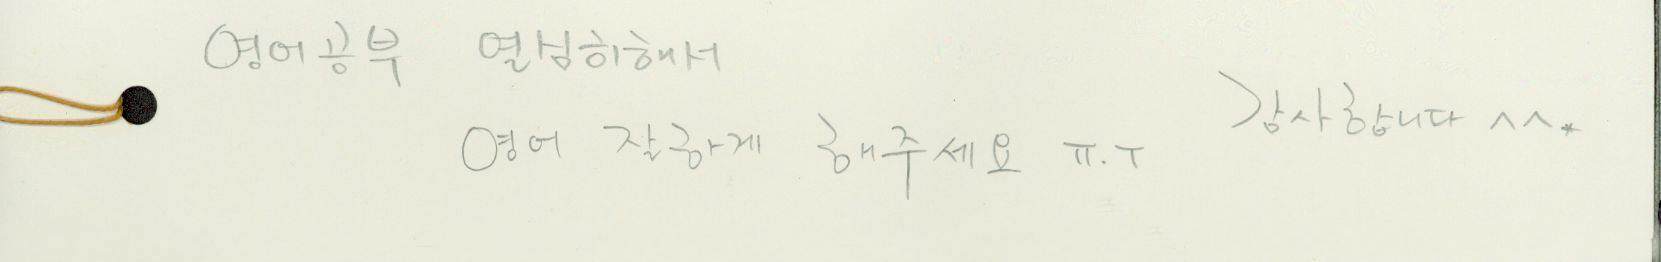 영어공부 열심히해서
영어 잘하게 해주세요 ㅠ.ㅜ
감사합니다 ^^*